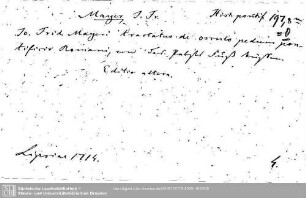 Mayer, J. Fr. Hist. pontif. 197,8
Jo. Frid. Mayeri tractatus de osculo pedum pon-
tificis Romani, von des Pabsts Fuß Küssen.
Editio altera.
Lipsiae 1714. 4.
Sächsische Landesbibliothek –
Staats- und Universitätsbibliothek Dresden